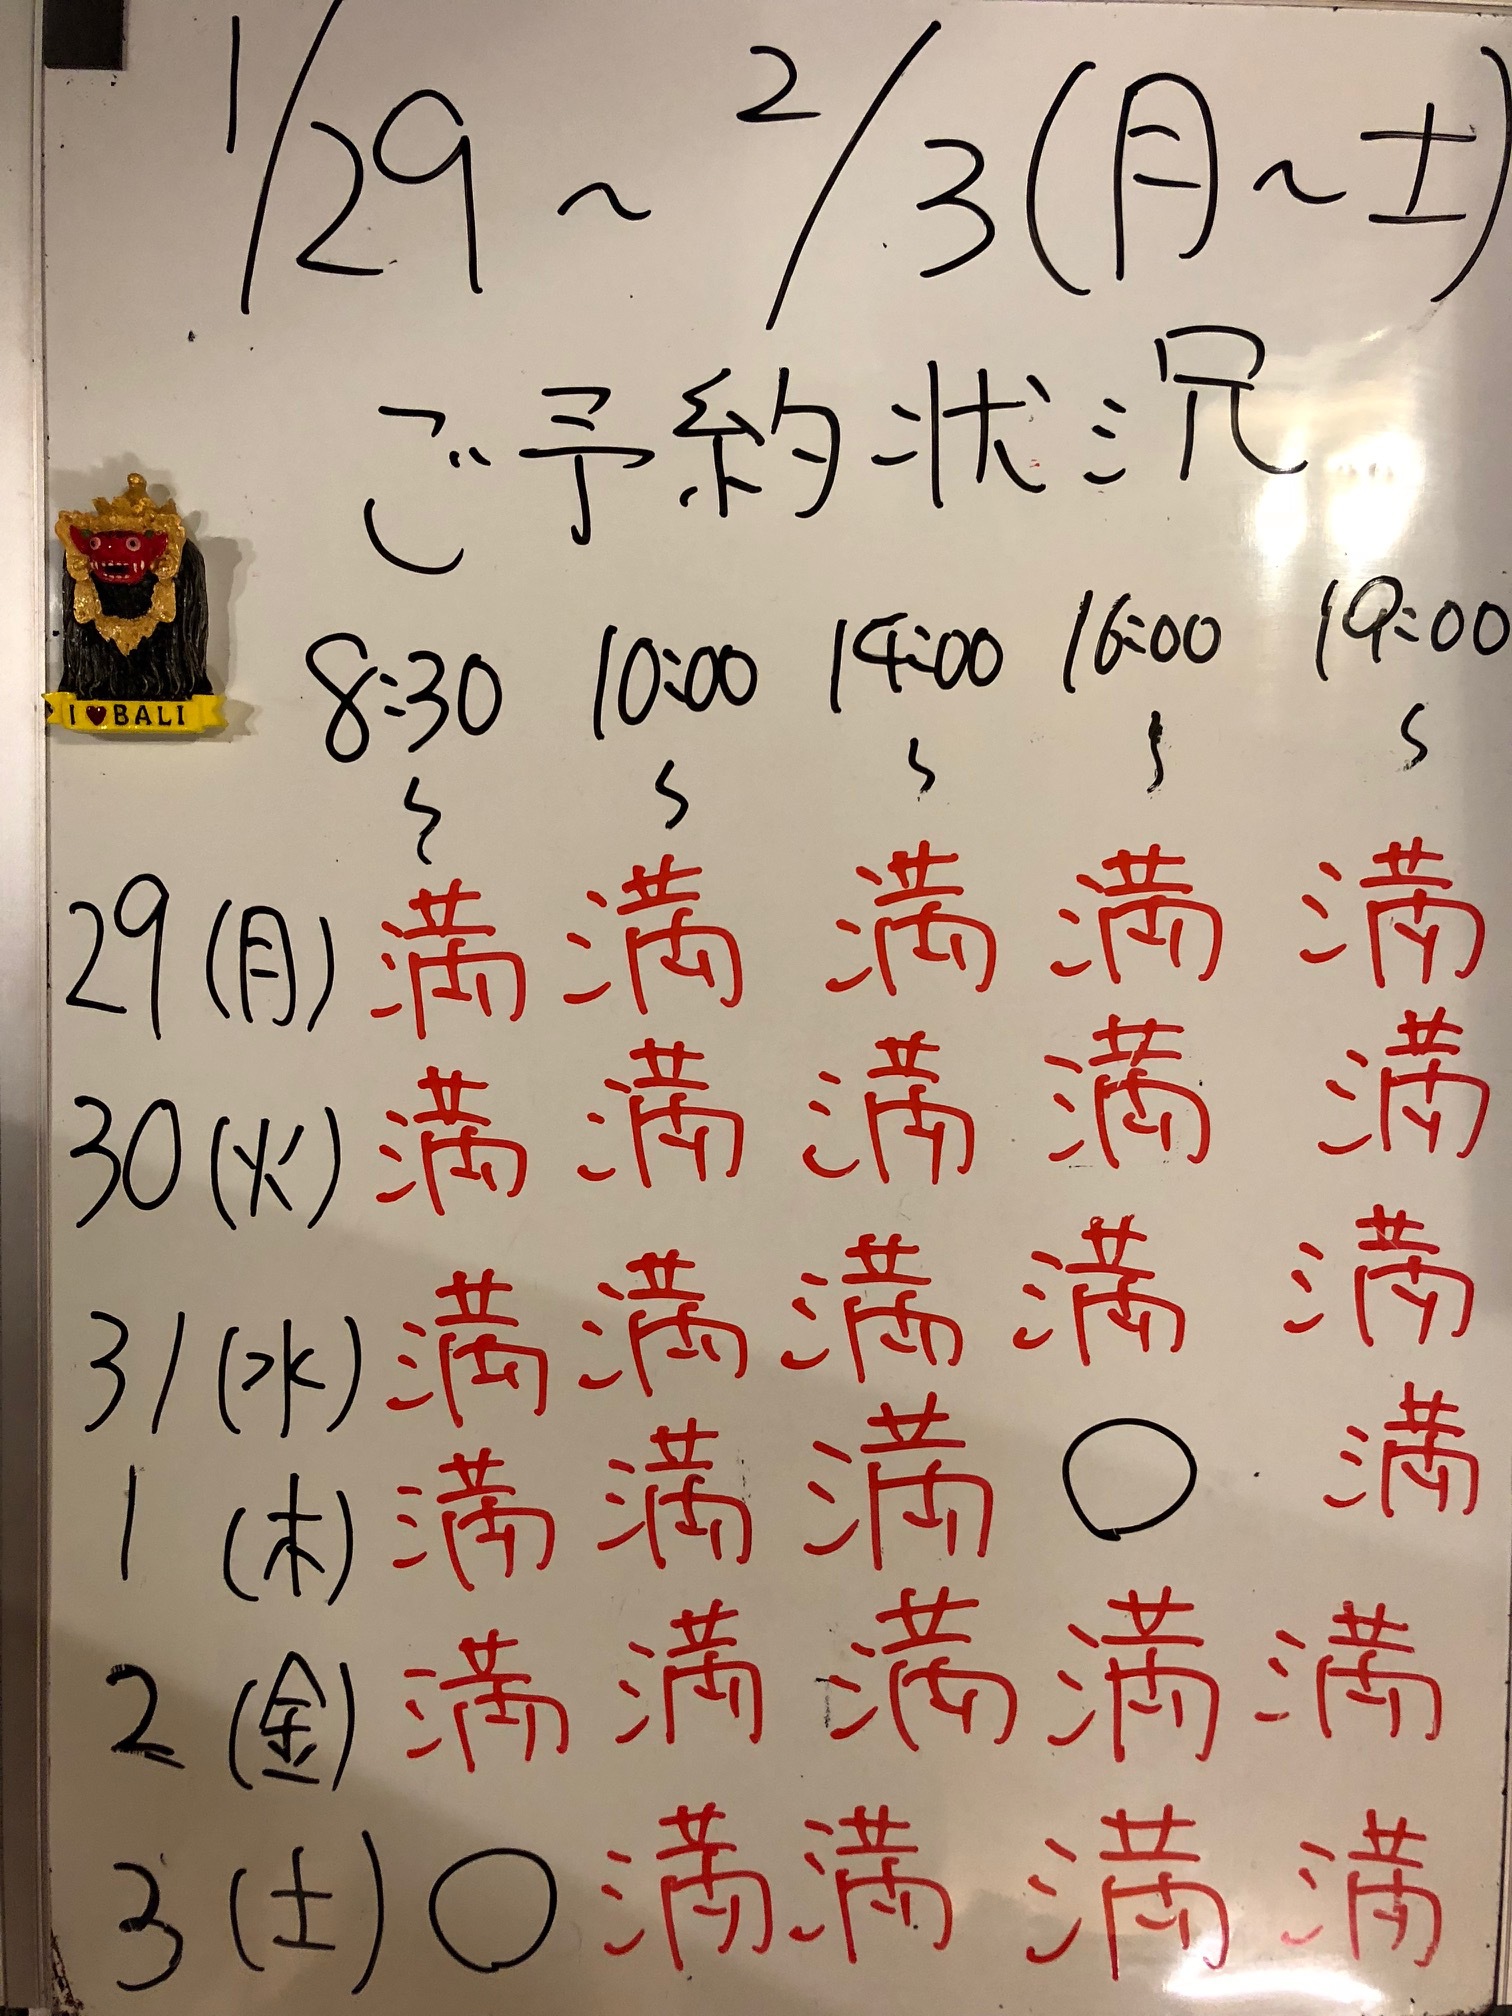 1/29～2/3(月～土)
ご予約状況
8:30～ 10:00～ 14:00～ 16:00～ 19:00～
I ♥ BALI
29(月) 満 満 満 満 満
30(火) 満 満 満 満 満
31(水) 満 満 満 満 満
1(木) 満 満 満 ○ 満
2(金) 満 満 満 満 満
3(土) ○ 満 満 満 満